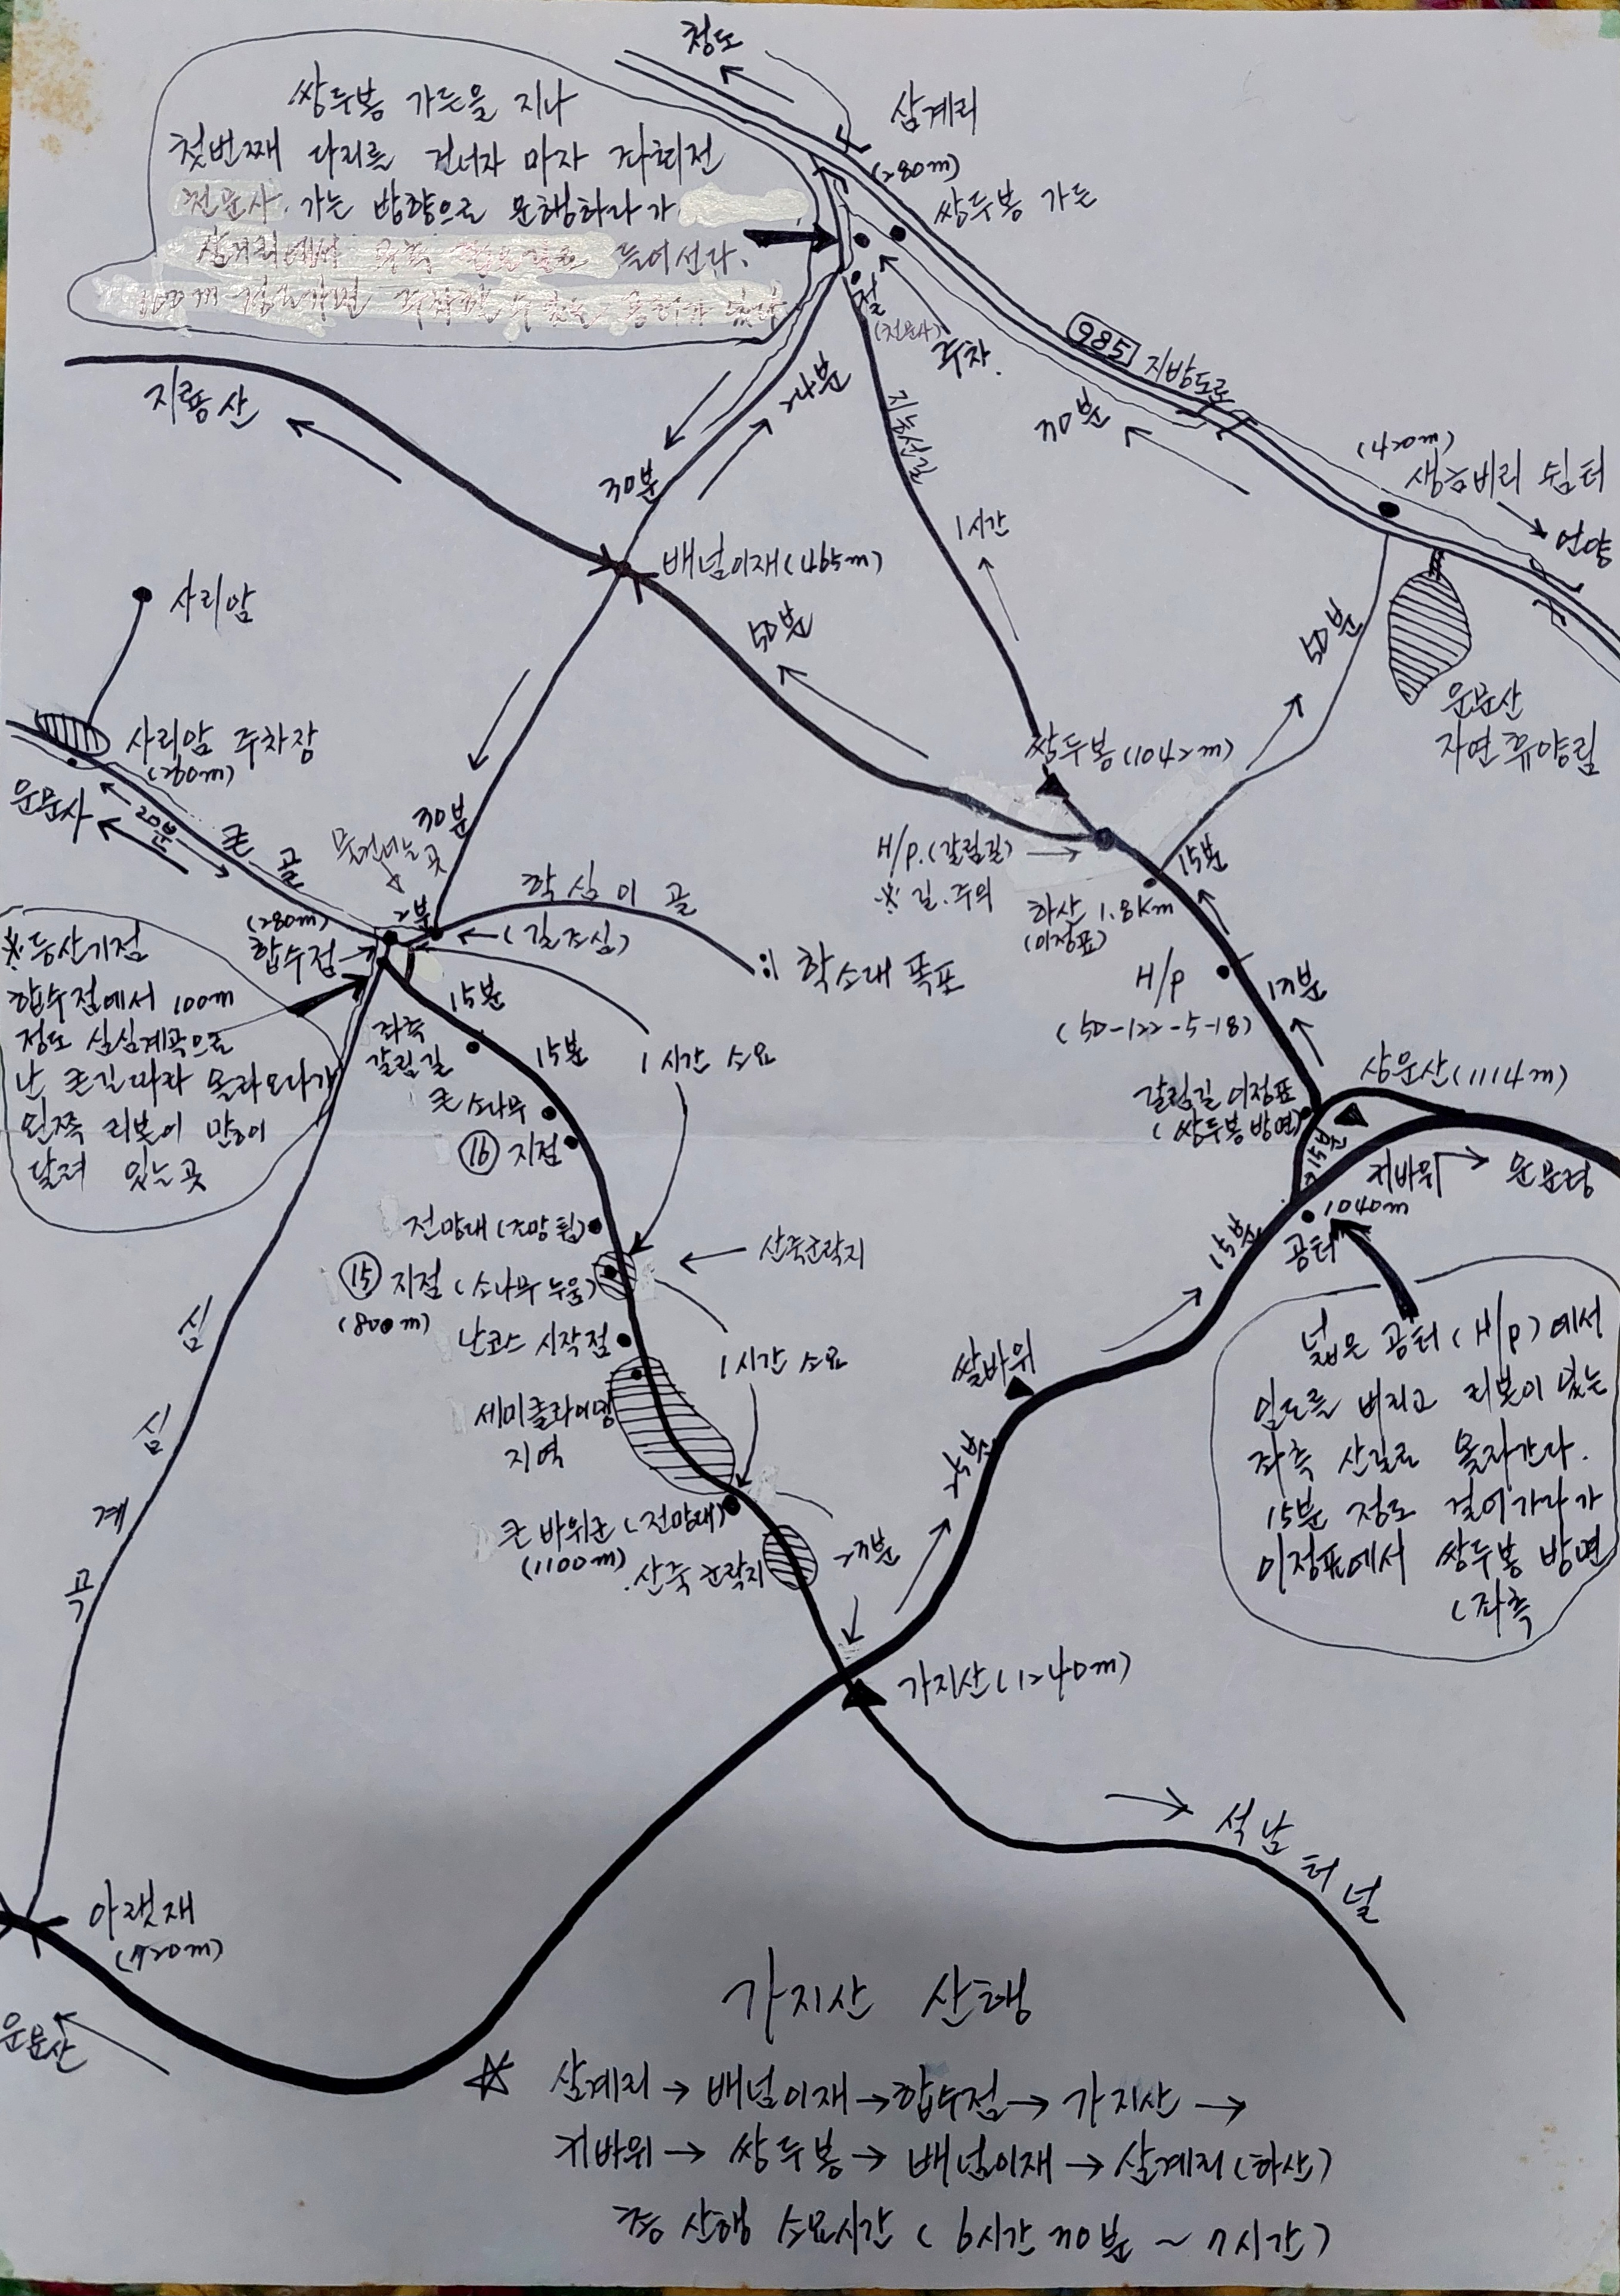 청도
삼계리
(280m)
쌍두봉 가든
쌍두봉 가든을 지나
첫번째 다리를 건너자 마자 좌회전
천문사. 가는 방향으로 운행하다가
삼거리에서 들어선다.
절
(천문사)
주차.
985 지방도로
30분
(420m)
생금비리 쉼터
언양
운문산
자연휴양림
지룡산
24분
30분
지능선길
1시간
배넘이재(465m)
50분
50분
사리암
사리암 주차장
(260m)
운문사
20분
큰골
30분
물건너는 곳
2분
학심이골
(길조심)
학소대 폭포
(280m)
합수점
쌍두봉(1042m)
H/P.(갈림길)
※길.주의
15분
하산 1.8Km
(이정표)
H/P
(50-122-5-18)
17분
갈림길 이정표
(쌍두봉 방면)
상운산(1114m)
15분
귀바위
운문령
1040m
공터
15분
※등산기점
합수점에서 100m
정도 심심계곡으로
난 큰길따라 올라오다가
왼쪽 리본이 많이
달려 있는곳
15분
좌측
갈림길
15분
큰 소나무
⑯ 지점
1시간 소요
전망대(조망됨)
⑮ 지점(소나무 누움)
(800m)
산죽군락지
난코스 시작점
1시간 소요
세미클라이밍
지역
큰 바위군(전망대)
(1100m)
산죽군락지
27분
쌀바위
25분
넓은 공터(H/P)에서
임도를 버리고 리본이 있는
좌측 산길로 올라간다.
15분 정도 걸어가다가
이정표에서 쌍두봉 방면
(좌측
심심계곡
가지산(1240m)
석남터널
아랫재
(720m)
운문산
가지산 산행
☆ 삼계리→배넘이재→합수점→가지산→
귀바위→쌍두봉→배넘이재→삼계리(하산)
총 산행 소요시간(6시간 30분~7시간)